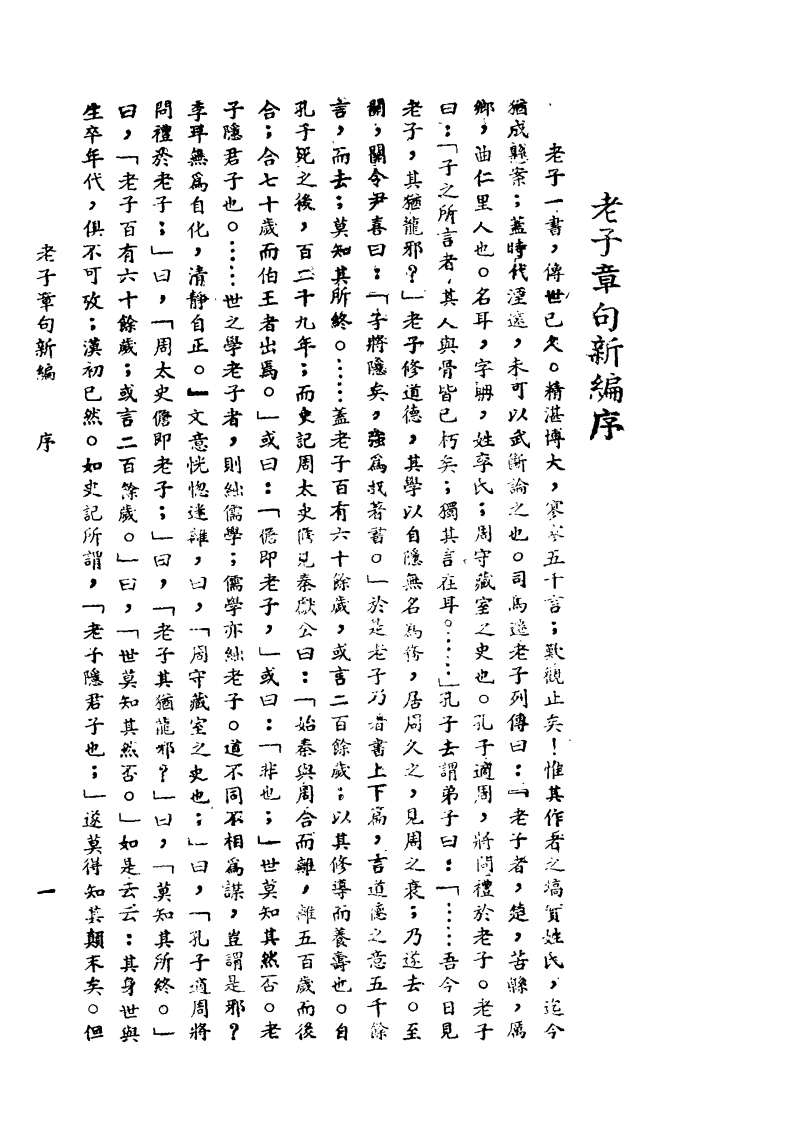 老子章句新編序
老子一書，傳世已久。精湛博大，寥寥五千言；歎觀止矣！惟其作者之塙實姓氏，迄今
猶成懸案；蓋時代湮遠，未可以武斷論之也。司馬遷老子列傳曰：「老子者，楚，苦縣，厲
鄉，曲仁里人也。名耳，字聃，姓李氏；周守藏室之史也。孔子適周，將問禮於老子。老子
曰：「子之所言者，其人與骨皆已朽矣；獨其言在耳。……」孔子去謂弟子曰：「……吾今日見
老子，其猶龍邪？」老子修道德，其學以自隱無名為務，居周久之，見周之衰；乃遂去。至
關，關令尹喜曰：「子將隱矣，強為我著書。」於是老子乃著書上下篇，言道德之意五千餘
言，而去；莫知其所終。……蓋老子百有六十餘歲，或言二百餘歲；以其修導而養壽也。自
孔子死之後，百二十九年；而史記周太史儋見秦獻公曰：「始秦與周合而離，離五百歲而後
合；合七十歲而伯王者出焉。」或曰：「儋即老子，」或曰：「非也；」世莫知其然否。老
子隱君子也。……世之學老子者，則絀儒學；儒學亦絀老子。道不同不相為謀，豈謂是邪？
李耳無為自化，清靜自正。」文意恍惚迷離，曰，「周守藏室之史也；」曰，「孔子適周將
問禮於老子；」曰，「周太史儋即老子；」曰，「老子其猶龍邪？」曰，「莫知其所終。」
曰，「老子百有六十餘歲；或言二百餘歲。」曰，「世莫知其然否。」如是云云：其身世與
生卒年代，俱不可攷；漢初已然。如史記所謂，「老子隱君子也；」遂莫得知其顛末矣。但
老子章句新編 序 一